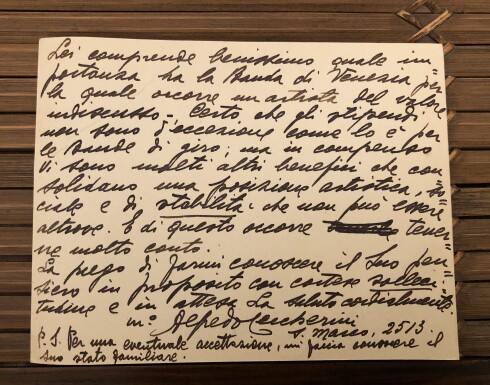 Lei comprende benissimo quale im=
portanza ha la Banda di Venezia per=
la quale occorre un artista del valore
indiscusso. Certo che gli stipendi,
non sono d'eccezione come lo è per
le Bande di giro; ma in compenso
vi sono molti altri benefici che con
solidano una posizione artistica, so=
ciale e di stabilità che non può essere
altrove. E di questo occorre tener=
ne molto conto.
La prego di farmi conoscere il Suo pen=
siero in proposito con cortese solleci=
tudine e in attesa La saluto cordialmente.
m° Alfredo Ceccherini
S. Marco, 2513.
P.S. Per una eventuale accettazione, mi faccia conoscere il
suo stato familiare.